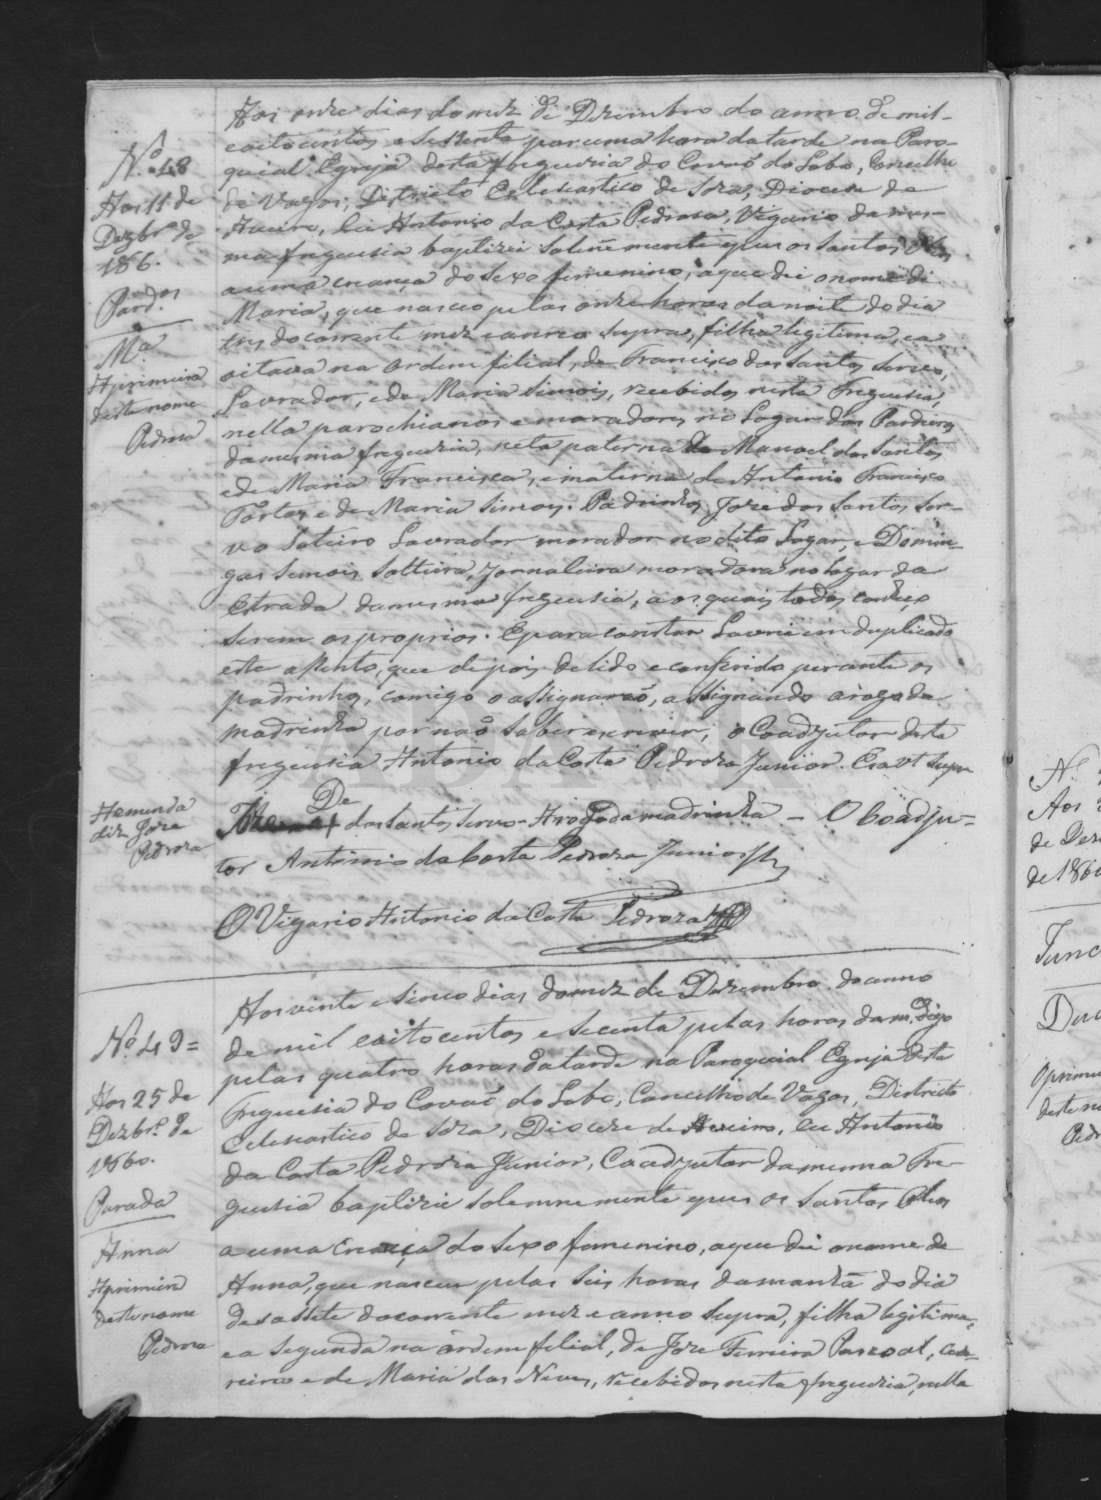 Aos onze dias do mez de Dezembro do anno de mil-
eoitocentos e sessenta por uma hora da tarde na Paro-
quial Egreja desta freguezia do Covaõ do Lobo, Concelho
de Vagos, Districto Eclesiastico de Soza, Diocese de
Aveiro, eu Antonio da Costa Pedroza, Vigario da mes-
ma freguesia baptizei solemnemente e puz os santos Oleos
a uma criança do sexo femenino, a que dei o nome de
Maria, que nasceu pelas onze horas da noite do dia
tres do corrente mez e anno supra, filha legitima, e a
oitava na ordem filial, de Francisco dos Santos Servo,
Lavrador, e de Maria Simois, recebidos nesta Freguesia,
nella parochianos e moradores no Lugar dos Pardieiros
da mesma freguezia, neta paterna de Manoel dos Santos
e de Maria Francisca, e materna de Antonio Francisco
Portas e de Maria Simois. Padrinhos Joze dos Santos Ser-
vo Solteiro Lavrador morador no dito Lugar, e Domin-
gas Simois Solteira, Jornaleira moradora no lugar da
Estrada da mesma freguesia, aos quais todos conheço
serem os proprios. E para constar Lavrei em duplicado
este assento, que depois de lido e conferido perante os
padrinhos, comigo o assignaraõ, assignando a rogo da
madrinha por naõ saber escrever, o Coadjutor desta
freguesia Antonio da Costa Pedroza Junior. Era ut supra
De
Joze dos Santos Servo - A rogo da madrinha - O Coadju=
tor Antonio da Costa Pedroza Junior
O Vigario Antonio da Costa Pedroza
Nº 48
Aos 11 de
Dezbrº de
186.
Pard.os
Mª
A primeira
deste nome
Pedroza
A emenda
diz Joze
Pedroza
Aos vinte e sinco dias do mez de Dezembro do anno
de mil eoitocentos e secenta pelas horas da m. Digo
pelas quatro horas da tarde na Paroquial Egreja desta
Freguesia do Covaõ do Lobo, Concelho de Vagos, Districto
Eclesiastico de Soza, Diocese de Aveiro, eu Antonio
da Costa Pedroza Junior, Coadjutor da mesma Fre-
guesia baptizei solemnemente e puz os santos Oleos
a uma criança do sexo femenino, a que dei o nome de
Anna, que nasceu pelas seis horas da manhã do dia
desassete do corrente mez e anno supra, filha legitima,
e a segunda na ordem filial, de Joze Ferreira Pascoal, Car-
reiro e de Maria das Neves, recebidos nesta freguezia, nella
Nº 49=
Aos 25 de
Dezbrº de
1860.
Parada
Anna
A primeira
deste nome
Pedroza
Nº
Aos
de Dez
de 1860
Junc
O prime
deste n
Ped